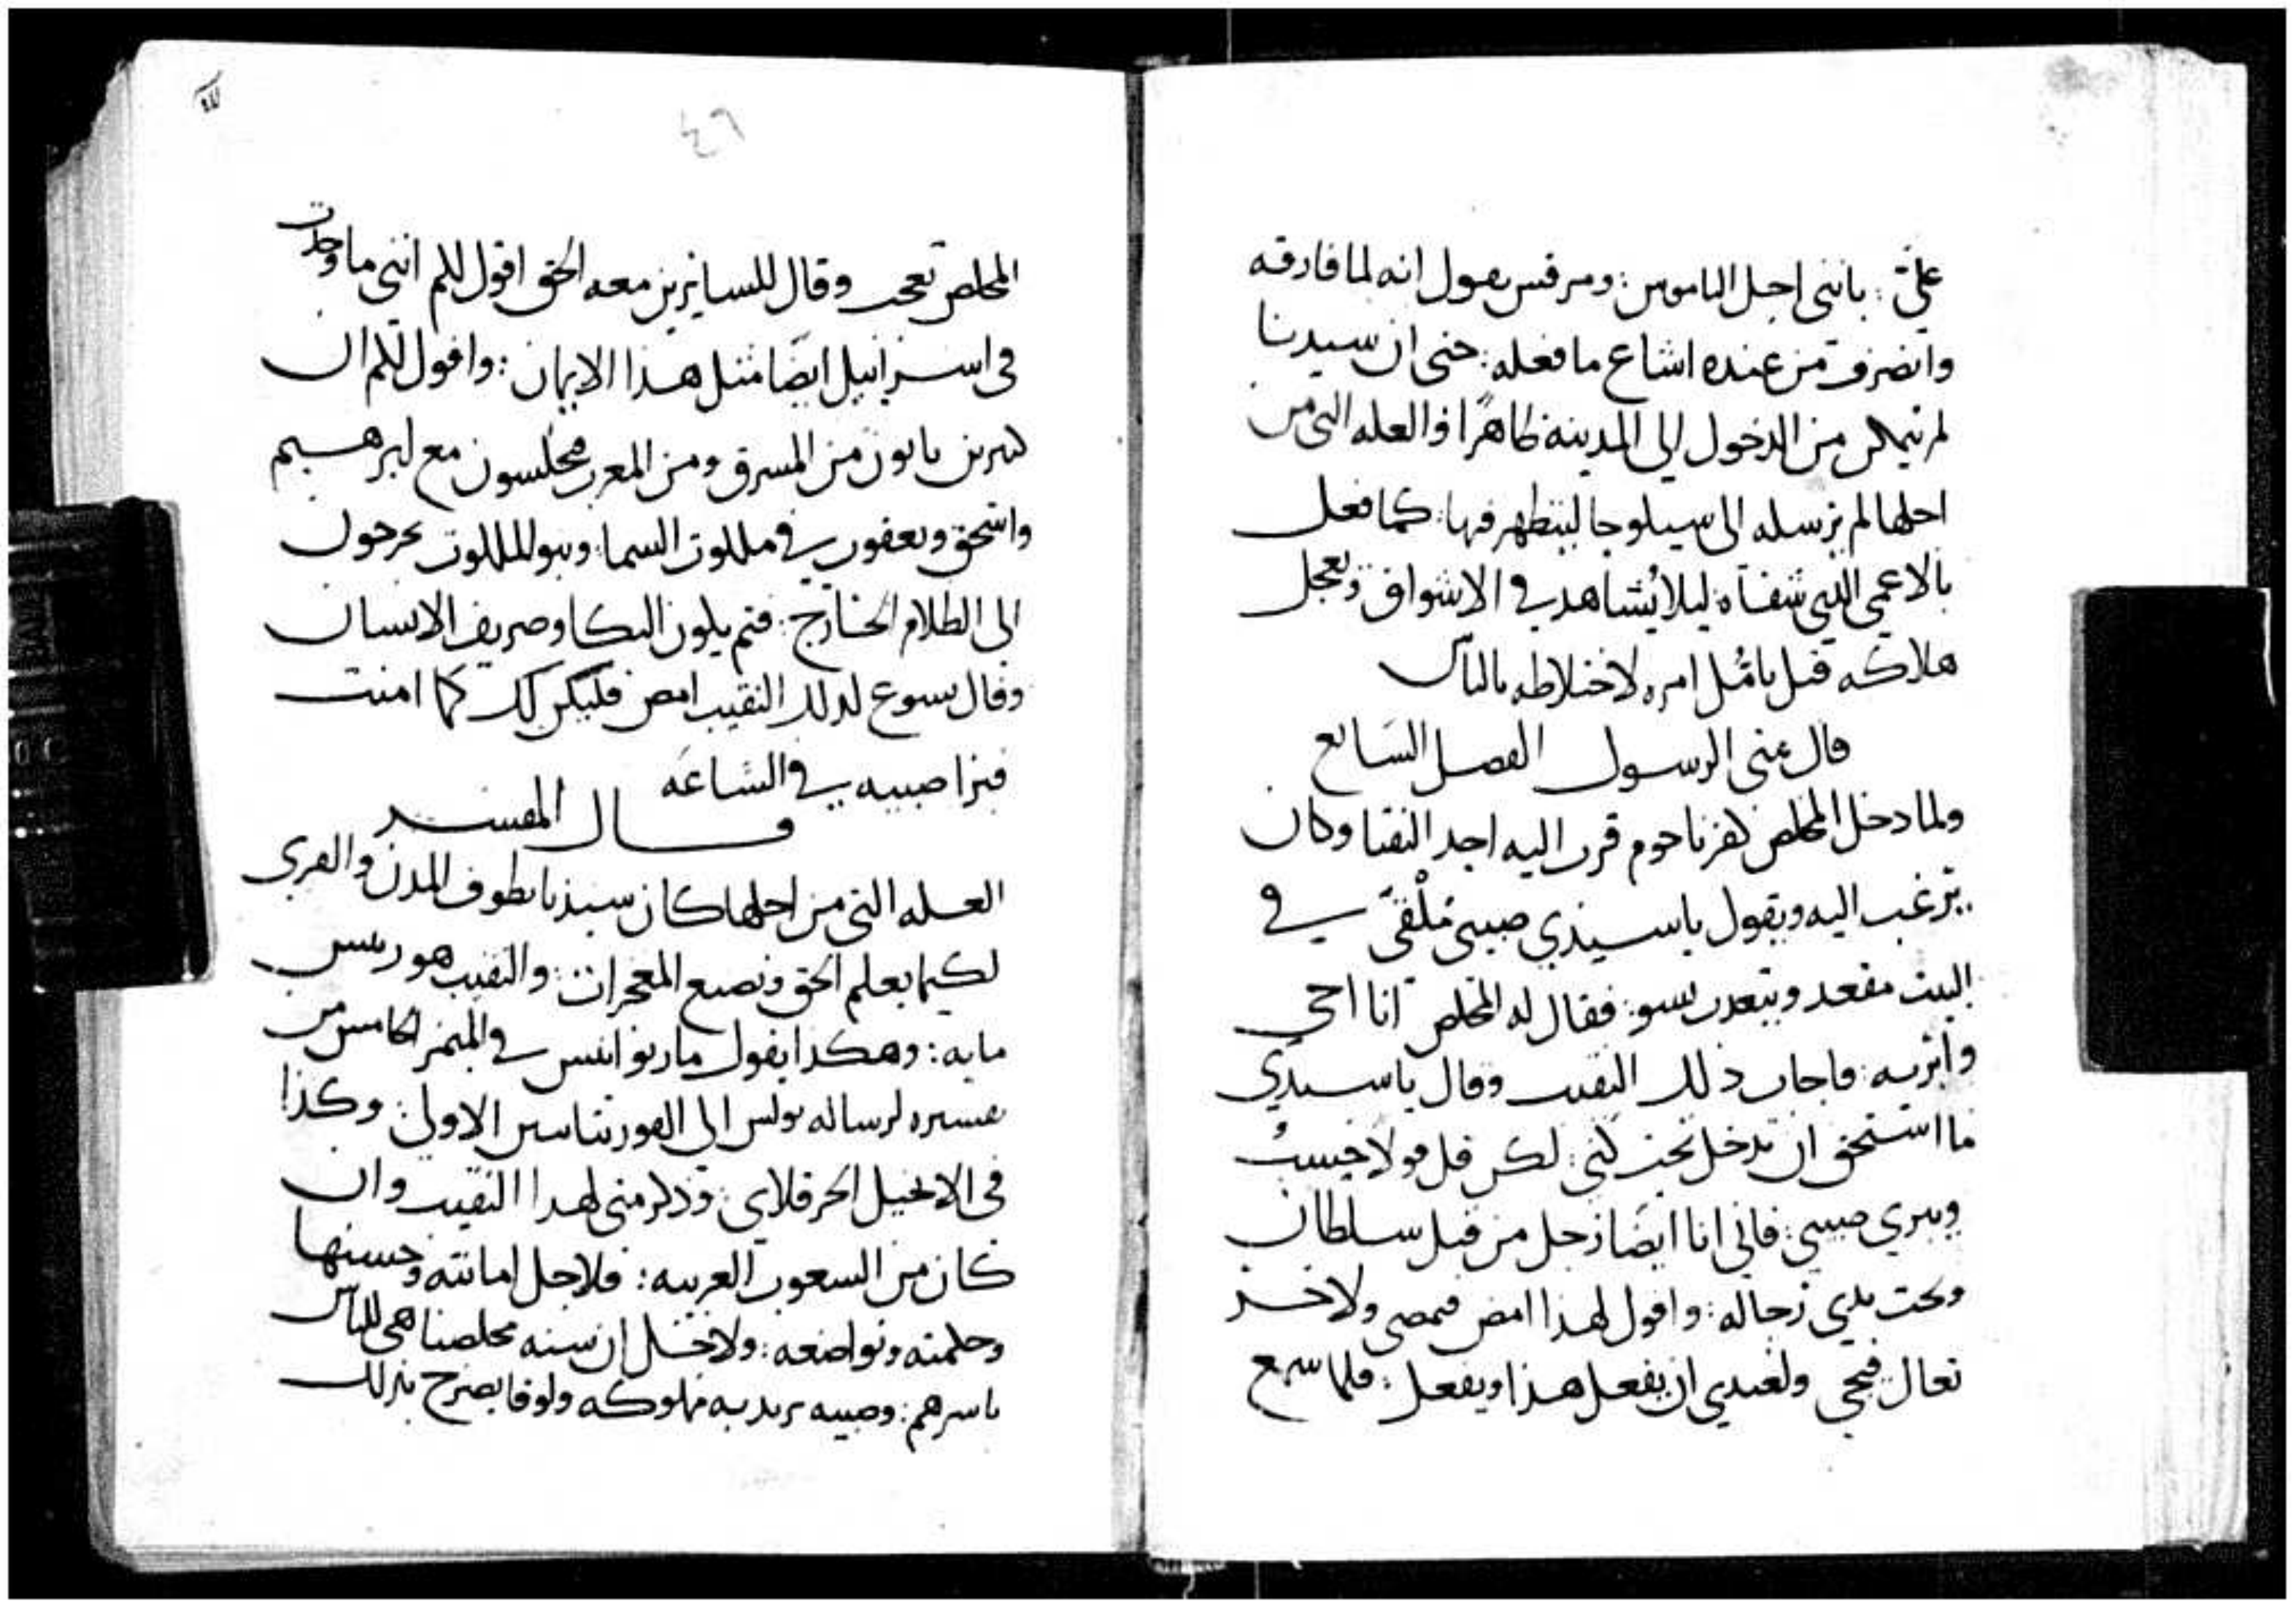 عليّ: بانني احل الناموس: ومرقس يقول انه لما فارقه
وانصرف من عنده اشاع ما فعله: حتى ان سيدنا
لم يتمكن من الدخول الى المدينه ظاهرًا والعله التي من
اجلها لم يرسله الى سيلوحا ليتطهر فيها: كما فعل
بالاعمى الذي شفاه ليلا يُشاهد في الاسواق ويعجل
هلاكه قبل تامُل امره لاختلاطه بالناس
قال متى الرسول الفصل السابع
ولما دخل المخلص كفرناحوم قرب اليه احد النقبا وكان
يترغب اليه ويقول يا سيدي صبيي مُلْقى في
البيت مقعد ويتعدب بسو: فقال له المخلص انا اجي
وابريه: فاجاب ذلك النقيب وقال يا سيدي
ما استحق ان تدخل تحت كني: لكن قل قولا حسبُ
ويبري صبيي: فاني انا ايضًا رجل من قبل سلطان
وتحت يدي رجاله: واقول لهذا امض فيمضي ولاخر
تعال فيجي ولعبدي ان يفعل هذا ويفعل: فلما سمع
٤٦
المخلص تعجب وقال للسايرين معه الحق اقول لكم انني ما وجدت
في اسرائيل ايضًا مثل هذا الايمان: واقول لكم ان
كثيرين ياتون من المشرق ومن المغرب فيجلسون مع ابرهيم
واسحق ويعقوب في ملكوت السما: وبنو الملكوت يخرجون
الى الظلام الخارج: فثم يكون البكا وصريف الاسنان
وقال يسوع لذلك النقيب امض فليكن لك كما امنت
فبرا صبيه في الساعه
قال المفسر
العله التي من اجلها كان سيدنا يطوف المدن والقرى
لكيما يعلم الحق ويصنع المعجزات: والنقيب هو ريس
مايه: وهكذا يقول مار يوانيس في الميمر الخامس من
تفسيره لرساله بولس الى القورنتاسين الاولى: وكذا
في الانجيل الحرقلاي: وذكر متى لهذا النقيب وان
كان من الشعوب الغريبه: فلاجل امانته وحسنها
وحكمته وتواضعه: ولاجل ان سنه مخلصنا هي للناس
باسرهم: وصبيه يريد به مملوكه ولوقا يصرح بذلك